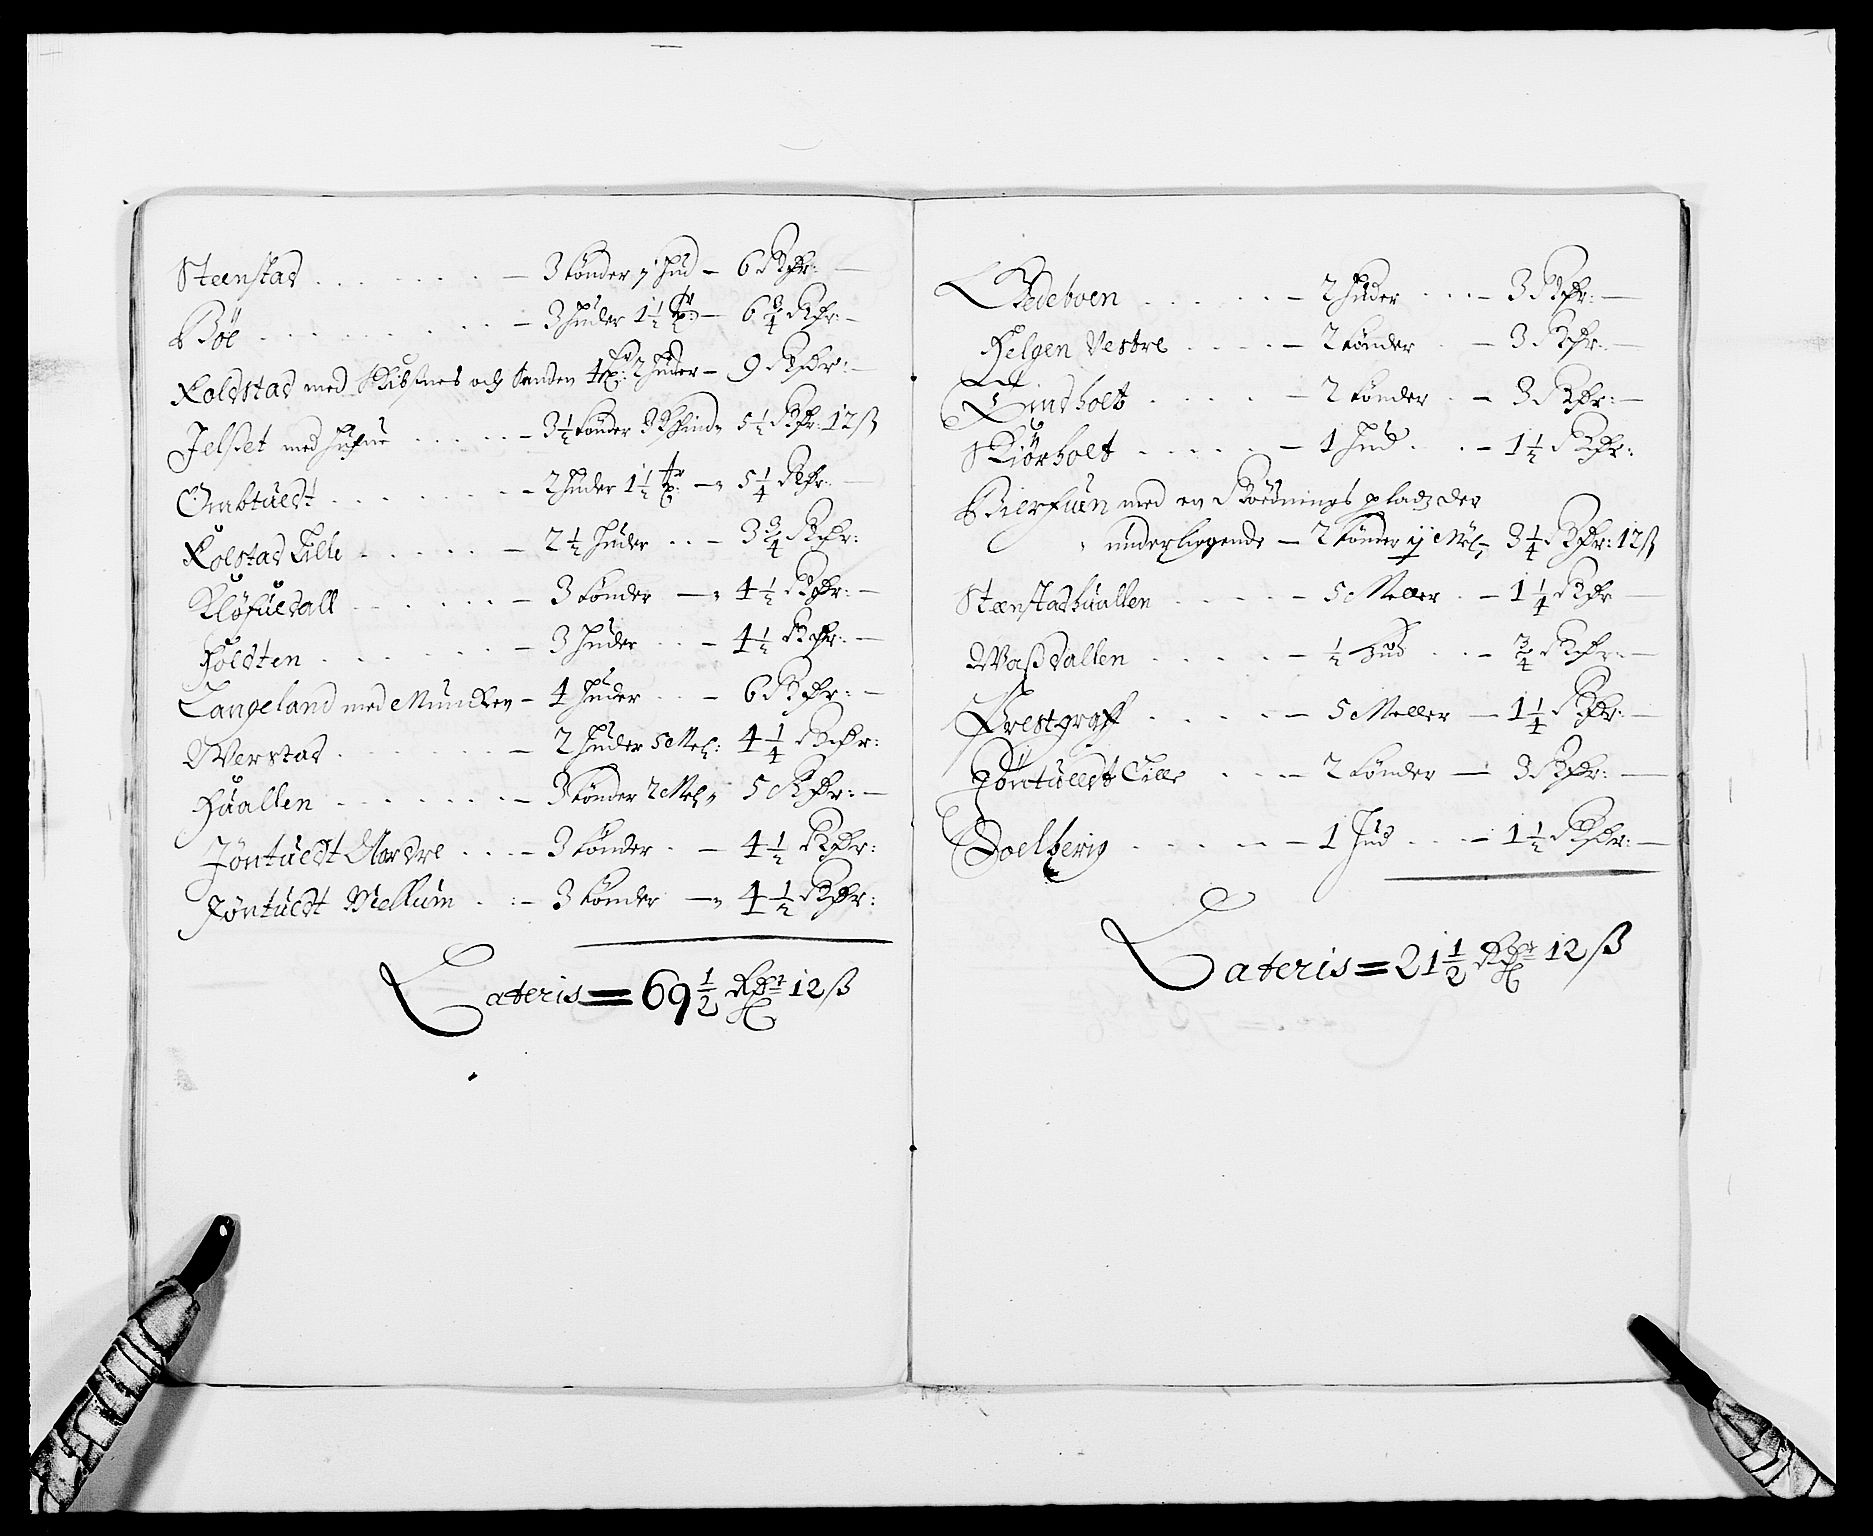 Steenstad - 3 tønder j hud - 6 Rdr: -
Bøe - 3 huder 1 1/2 - 6 3/4 Rdr: -
Holdstad med Skibsnes och Sanden 2 huder - 9 Rdr: -
Jelset med - 3 1/2 tønder 3 5 1/2 Rdr: 12 ß
Ombtuedt - 2 huder 1 1/2 - 5 1/4 Rdr: -
Kolstad Lille - 2 1/2 huder - 3 3/4 Rdr:
Kløfuedall - 3 tønder - 4 1/2 Rdr: -
Holdten - 3 huder - 4 1/2 Rdr: -
Langeland med Muncken - 4 huder - 6 Rdr: -
Werstad - 2 huder 5 Mel: 4 1/4 Rdr:
Huallen - 3 tønder 2 Mel: 5 Rdr: -
Jøntuedt Nordre - 3 tønder - 4 1/2 Rdr:
Jøntuedt Mellum - 3 tønder - 4 1/2 Rdr:
Lateris = 69 1/2 Rdr 12 ß
Bedeboen - 2 huder - 3 Rdr: -
Helgen Vestre - 2 tønder - 3 Rdr: -
Lindholt - 2 tønder - 3 Rdr: -
Skiørholt - 1 hud - 1 1/2 Rdr:
med en Røednings pladz der
underliggende - 2 tønder ij Mel: 3 1/4 Rdr: 12 ß
Stænstadhuallen - 5 Meller - 1 1/4 Rdr -
Waßdallen - 1/2 hud - 3/4 Rdr: -
Prestgraff - 5 Meller - 1 1/4 Rdr: -
Jøntuedt Lille - 2 tønder - 3 Rdr: -
Doelberig - 1 hud - 1 1/2 Rdr: -
Lateris = 21 1/2 Rdr 12 ß